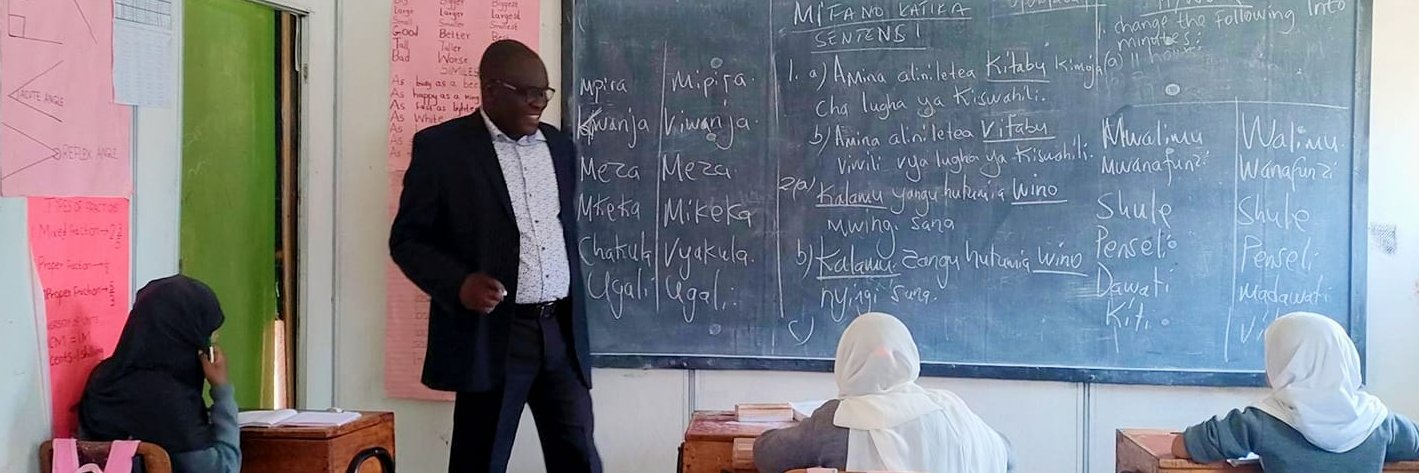 ACUTE ANGLE
REFLEX ANGLE
TYPES OF FRACTIONS
Mixed Fraction →
Proper Fraction →
Big Bigger Biggest
Large Larger Largest
Small Smaller Smallest
Good Better Best
Tall Taller
Bad Worse
SIMILES
As busy as a bee
As happy as a king
As
As White
As
As
As
Mpira Mipira.
Kiwanja Viwanja.
Meza Meza.
Mkeka Mikeka
Chakula Vyakula.
Ugali Ugali
MIFANO KATIKA
SENTENSI
1. a) Amina aliniletea Kitabu kimoja
cha lugha ya Kiswahili.
b) Amina aliniletea Vitabu
viwili vya lugha ya Kiswahili.
2(a) Kalamu yangu hutumia wino
mwingi sana
b) Kalamu zangu hutumia wino
nyingi sana.
1. change the following into
minutes;
(a) 11
Mwalimu Walimu.
Mwanafunzi Wanafunzi
Shule Shule
Penseli Penseli
Dawati Madawati
Kiti